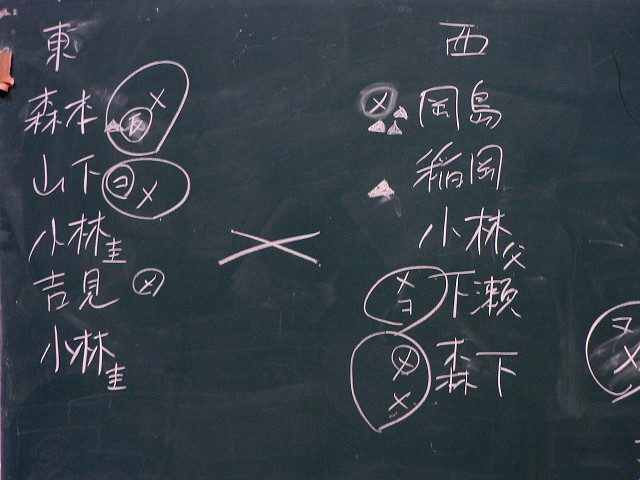 東
森本 反 メ
山下 ヨ メ
小林圭
吉見 メ
小林圭
西
メ 岡島
稲岡
小林父
メ ヨ 下瀬
メ メ 森下